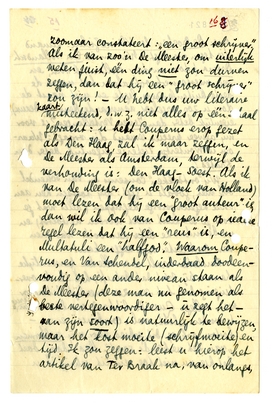 168
zoomaar constateert: „een groot schrijver".
Als ik van zoo'n De Meester, om uiterlijk
weten juist, één ding niet zou durven
zeggen, dan dat hij een "groot schrijver"
zou zijn! – U hebt dus uw literaire
kaart
misteekend, d.w.z. niet alles op één schaal
gebracht: u hebt Couperus erop gezet
als Den Haag, zal ik maar zeggen, en
De Meester als Amsterdam, terwijl de
verhouding is: Den Haag – Soest. Als ik
van De Meester (om de vloek van Holland)
moet lezen dat hij een "groot auteur" is
dan wil ik ook van Couperus op iedere
regel lezen dat hij een "reus" is, en
Multatuli een "halfgod". Waarom Coupe-
rus, en Van Schendel, inderdaad doodeen-
voudig op een ander niveau staan als
De Meester (deze man nu genomen als
beste vertegenwoordiger – u zegt het –
van zijn soort) is natuurlijk te bewijzen,
maar het kost moeite (schrijfmoeite) en
tijd. Ik zou zeggen: leest u hierop het
artikel van Ter Braak na, van onlangs,